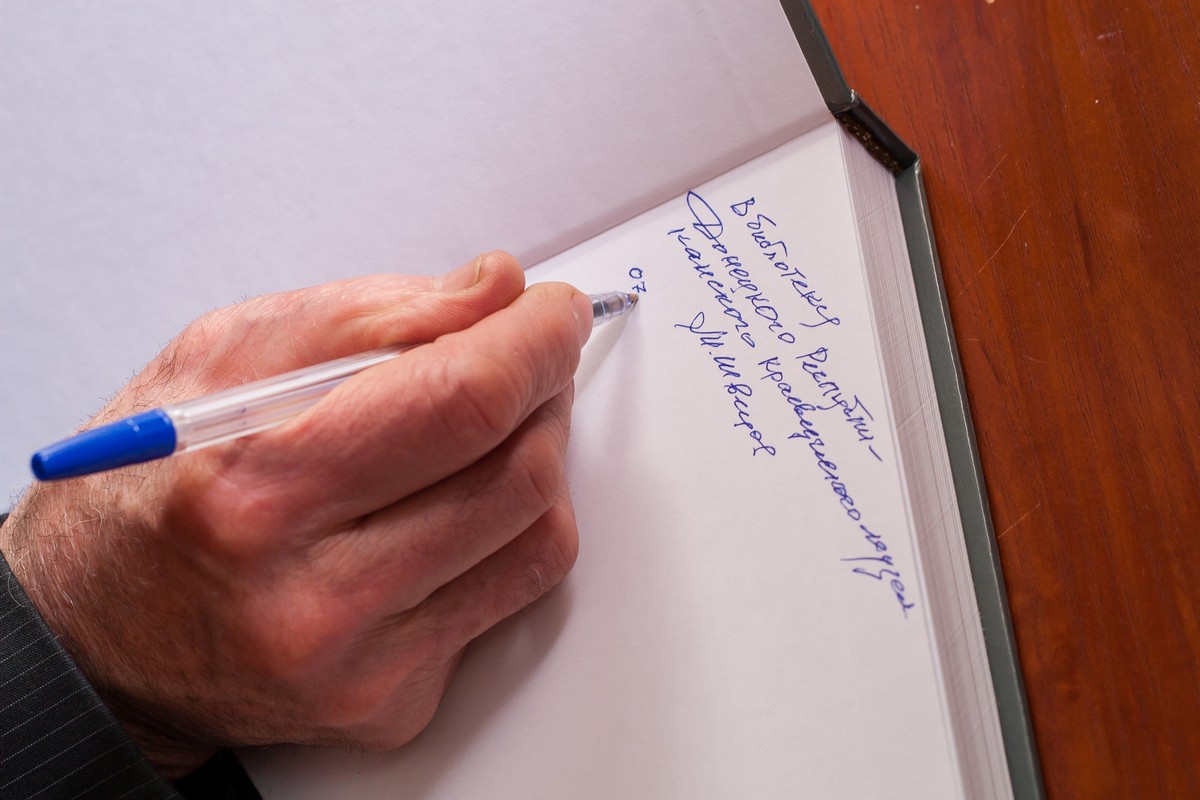 В библиотеку
Донецкого Республи-
канского краеведческого музея
07